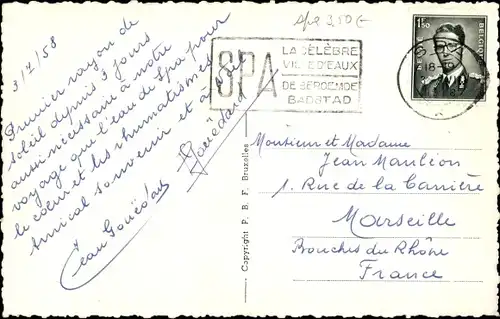 3/7/58
Premier rayon de
soleil depuis 3 jours
aussi nécessaire à notre
voyage que l'eau de Spa pour
le coeur et les rhumatismes.
Amical souvenir et à
Jean Gouëdard
Gouëdard
Spa 3,50 €
SPA
LA CÉLÈBRE
VILLE D'EAUX
DE BEROEMDE
BADSTAD
1F50
BELGIQUE
Copyright P. B. F. Bruxelles
Monsieur et Madame
Jean Maulion
1. Rue de la Carrière
Marseille
Bouches du Rhône
France